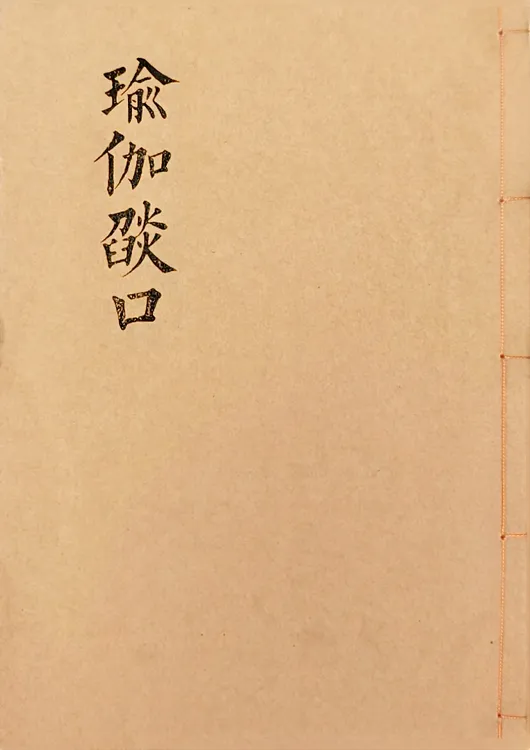 瑜伽燄口